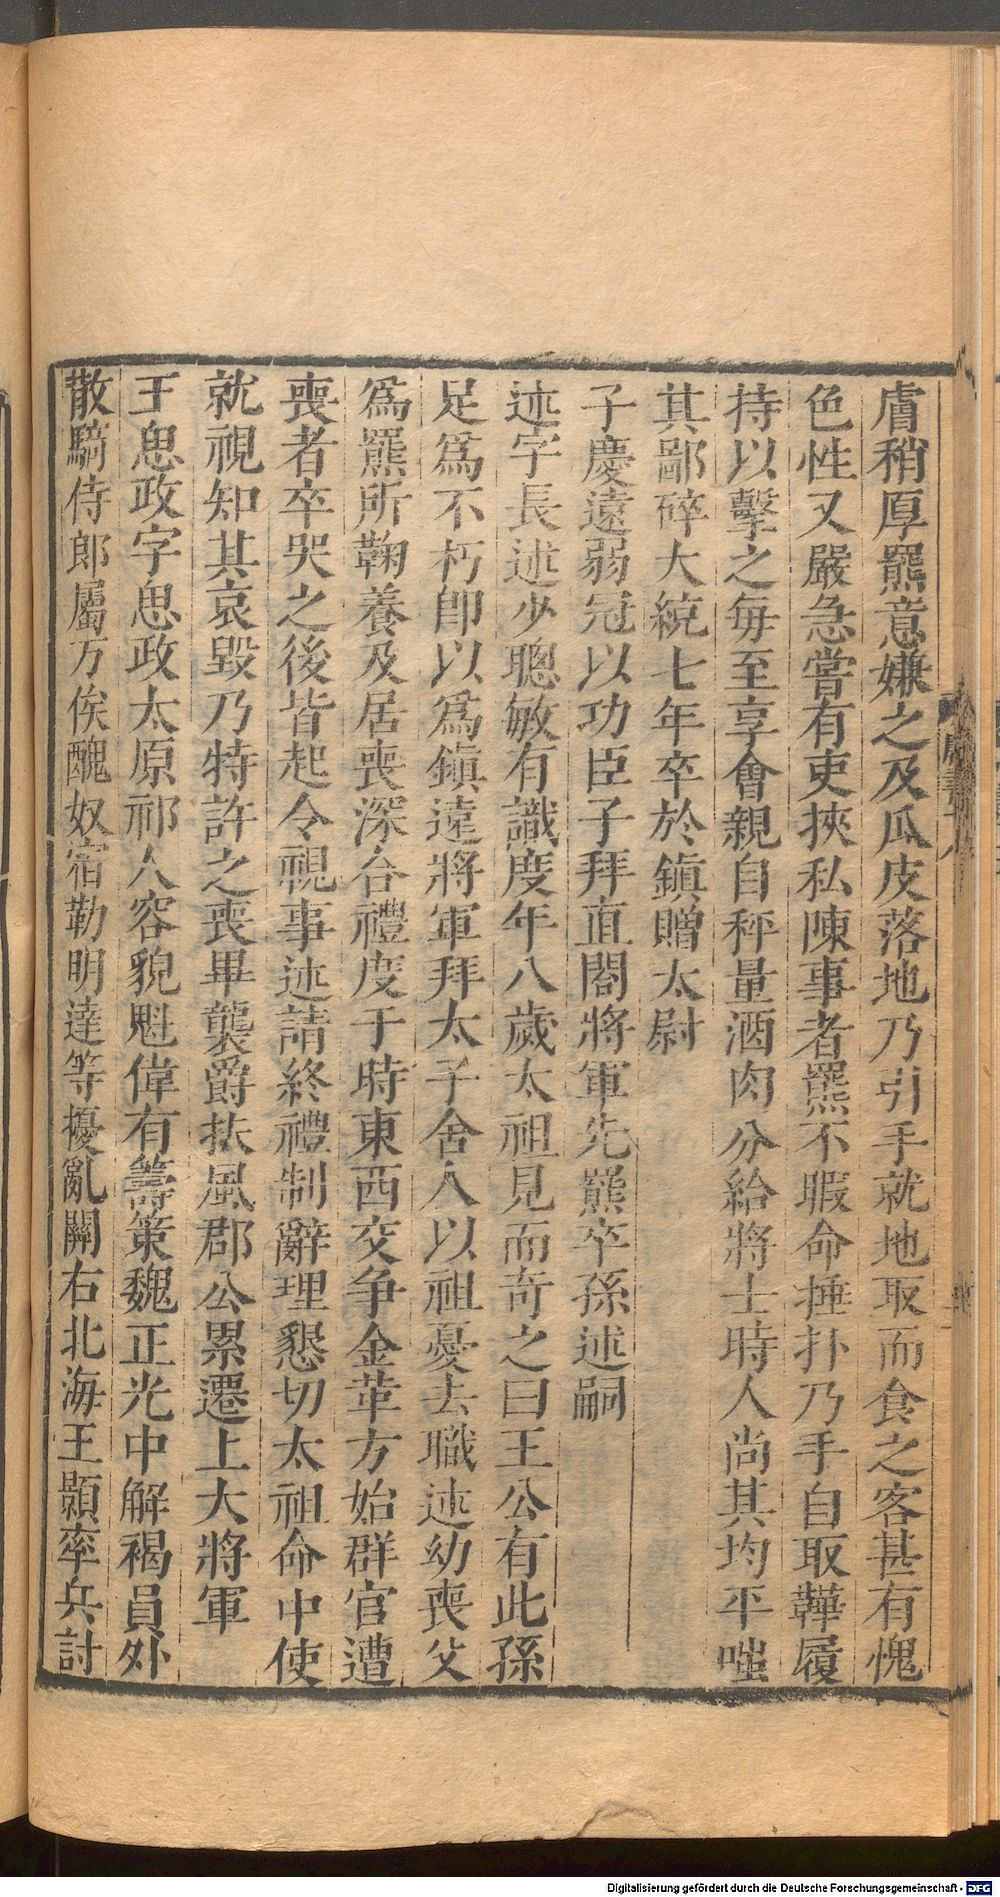 膚稍厚羆意嫌之及瓜皮落地乃引手就地取而食之客甚有愧
色性又嚴急嘗有吏挾私陳事者羆不暇命捶扑乃手自取鞾履
持以擊之每至享會親自秤量酒肉分給將士時人尚其均平嗤
其鄙碎大統七年卒於鎮贈太尉
子慶遠弱冠以功臣子拜直閤將軍先羆卒孫述嗣
述字長述少聰敏有識度年八歲太祖見而奇之曰王公有此孫
足爲不朽卽以爲鎮遠將軍拜太子舍人以祖憂去職述幼喪父
爲羆所鞠養及居喪深合禮度于時東西交争金革方始群官遭
喪者卒哭之後皆起令視事述請終禮制辭理懇切太祖命中使
就視知其哀毀乃特許之喪畢襲爵扶風郡公累遷上大將軍
王思政字思政太原祁人容貌魁偉有籌策魏正光中解褐員外
散騎侍郎屬万俟醜奴宿勒明達等擾亂關右北海王顥率兵討
Digitalisierung gefördert durch die Deutsche Forschungsgemeinschaft - DFG